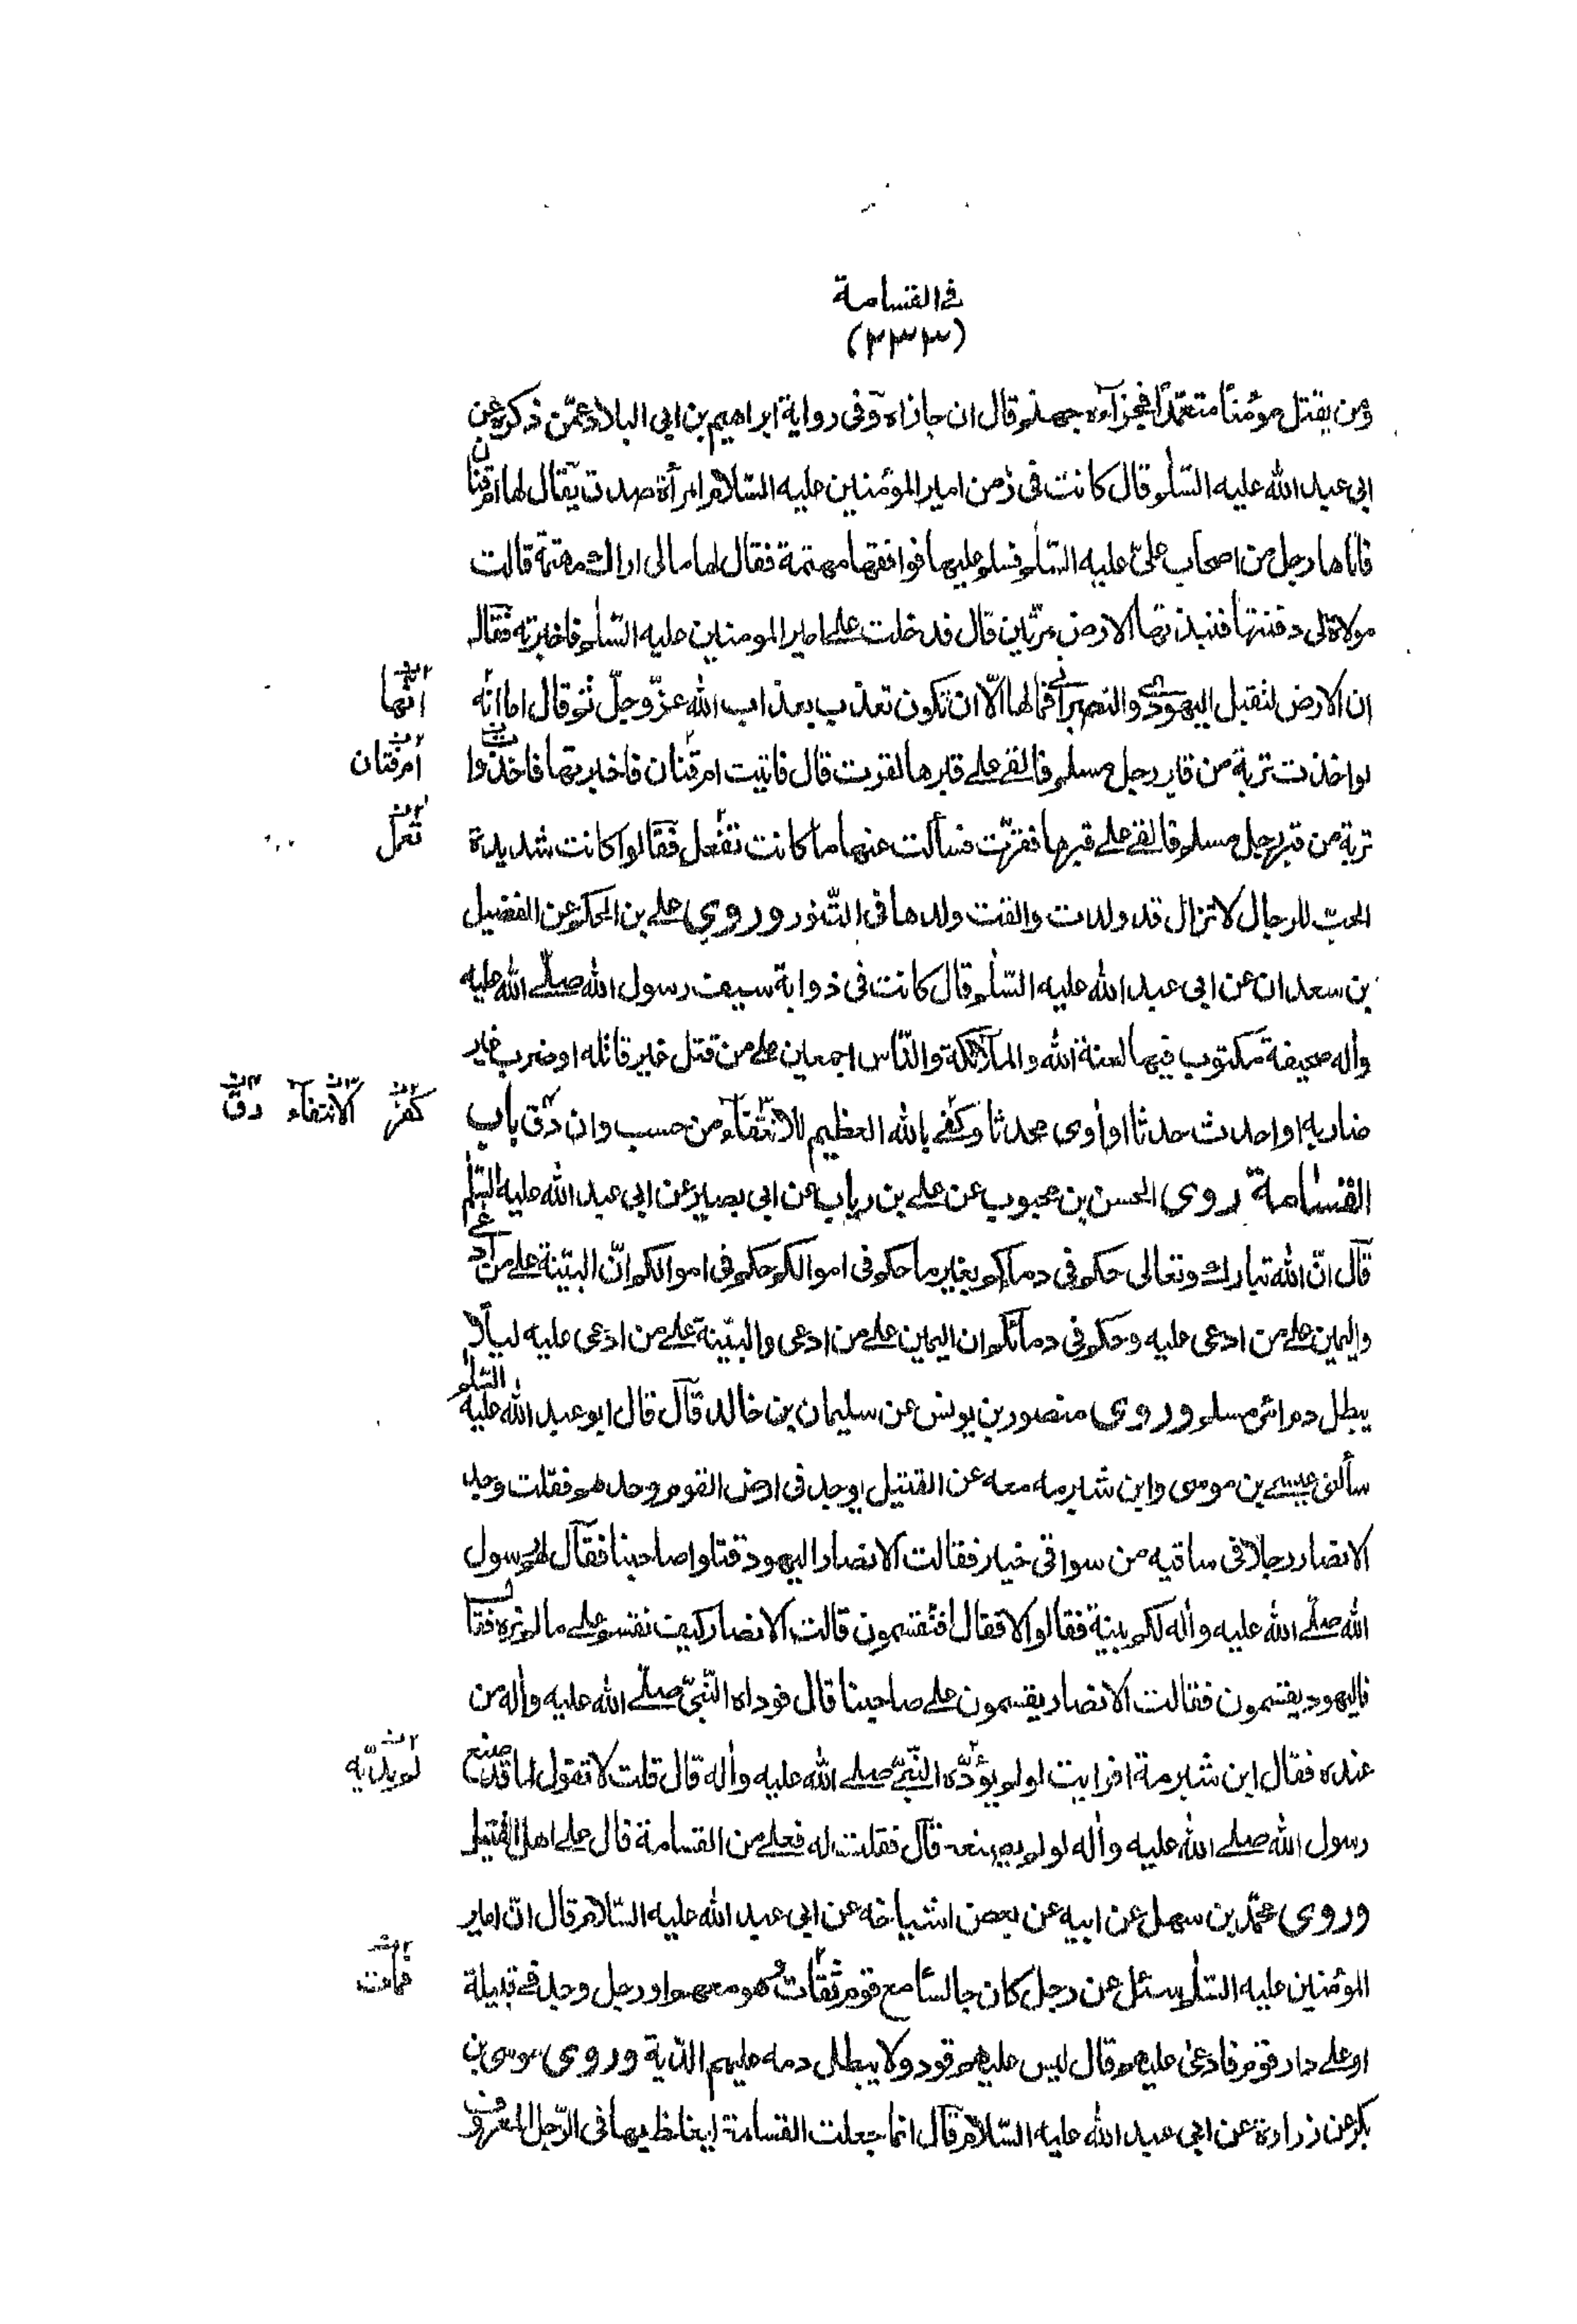 في القسامة
(٢٣٣)
ومن يقتل مومنًا متعمّدًا فجزآءه جهنم قال ان جازاه وفى رواية ابراهيم بن ابى البلاد عمّن ذكره عن
ابى عبد الله عليه السّلم قال كانت فى زمن امير المؤمنين عليه السّلام امرأة صدق يقال لها ام قنان
فاتاها رجل من اصحاب علىّ عليه السّلم فسلم عليها فوافقها مهتمة فقال لها مالى اراك مهتمة قالت
مولاة لى دفنتها فنبذتها الارض مرّتين قال فدخلت على امير المومنين عليه السّلم فاخبرته فقال
ان الارض لتقبل اليهودى والنصرانى فما لها الّا ان تكون تعذب بعذاب الله عزّ وجلّ ثم قال اما انه
انّها
لو اخذت تربة من قبر رجل مسلم فالقى على قبرها لقرت قال فاتيت ام قنان فاخبرتها فاخذوا
ام فتان
تربة من قبر رجل مسلم فالقى على قبرها فقرّت فسألت عنها ما كانت تفعل فقالوا كانت شديدة
تعمل
الحبّ للرجال لا تزال قد ولدت والقت ولدها فى التّنور وروى على بن الحكم عن الفضيل
بن سعدان عن ابى عبد الله عليه السّلم قال كانت فى ذوابة سيف رسول الله صلّى الله عليه
واله صحيفة مكتوب فيها لعنة الله والملآئكة والنّاس اجمعين على من قتل غير قاتله او ضرب غير
ضاربه او احدث حدثا او اوى محدثا وكفى بالله العظيم للانتفآء من حسب وان دق باب
كفر الانتفاء دقّ
القسامة روى الحسن بن محبوب عن على بن رياب عن ابى بصير عن ابى عبد الله عليه السّلم
قال انّ الله تبارك وتعالى حكم فى دمائكم بغير ما حكم فى اموالكم حكم فى اموالكم انّ البيّنة على من ادعى
واليمين على من ادعى عليه وحكم فى دمائكم ان اليمين على من ادعى والبيّنة على من ادعى عليه ليلّا
يبطل دم امرئ مسلم وروى منصور بن يونس عن سليمان بن خالد قال قال ابو عبد الله عليه السّلم
سألنى عيسى بن موسى وابن شبرمه معه عن القتيل يوجد فى ارض القوم وحدهم فقلت وجد
الانصار رجلا فى ساقيه من سواقى خيبر فقالت الانصار اليهود قتلوا صاحبنا فقال لهم رسول
الله صلّى الله عليه واله لكم بينة فقالوا لا فقال افتقسمون قالت الانصار كيف نقسم على ما لم نره فقال
فاليهود يقسمون فقالت الانصار يقسمون على صاحبنا قال فوداه النّبىّ صلّى الله عليه واله من
عنده فقال ابن شبرمة افرايت لو لم يؤدّه النّبىّ صلى الله عليه واله قال قلت لا نقول لما قد صنع
لم يديّه
رسول الله صلى الله عليه واله لو لم يصنعه قال فقلت له فعلى من القسامة قال على اهل القتيل
وروى محمّد بن سهل عن ابيه عن بعض اشياخه عن ابى عبد الله عليه السّلام قال انّ امير
المؤمنين عليه السّلم سئل عن رجل كان جالسًا مع قوم ثقات وهو معهم او رجل وجد فى قبيلة
فمات
او على دار قوم فادعى عليهم قال ليس عليهم قود ولا يبطل دمه عليهم الدّية وروى موسى بن
بكر عن زرارة عن ابى عبد الله عليه السّلام قال انما جعلت القسامة ليغلظ بها فى الرّجل المعروف